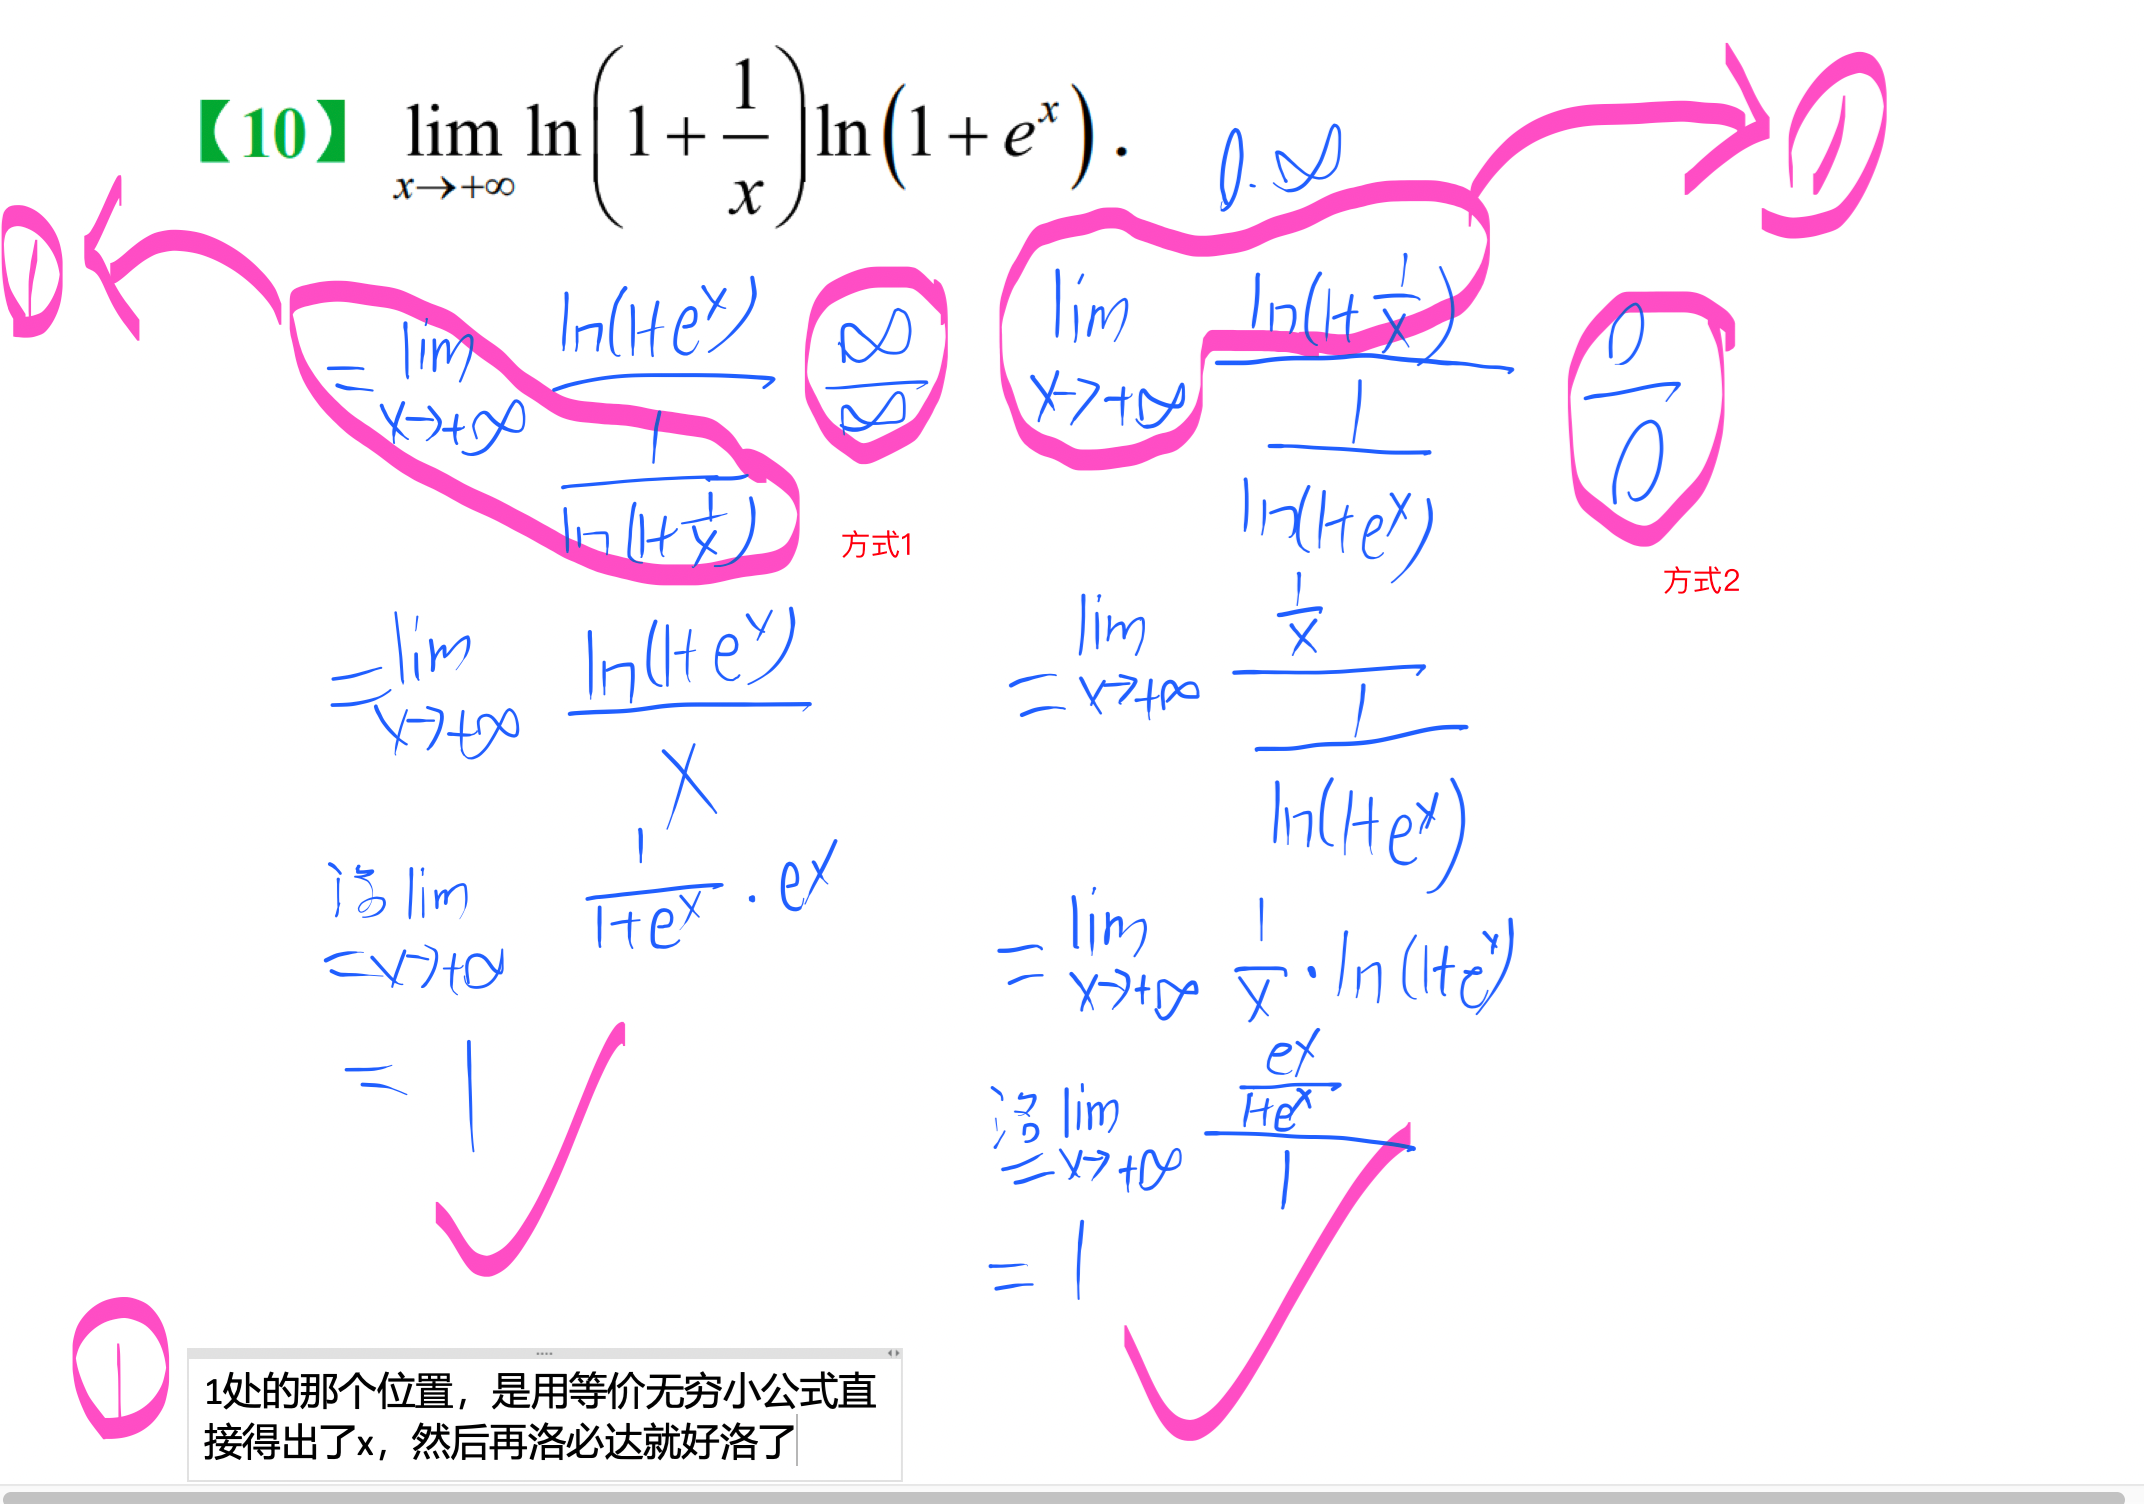 【10】 lim x→+∞ ln(1+1/x)ln(1+e^x).
0·∞
①
①
= lim x→+∞ ln(1+e^x) / (1/ln(1+1/x))
∞/∞
方式1
= lim x→+∞ ln(1+e^x)/x
洛 = lim x→+∞ 1/(1+e^x) · e^x
= 1
lim x→+∞ ln(1+1/x) / (1/ln(1+e^x))
0/0
方式2
= lim x→+∞ (1/x) / (1/ln(1+e^x))
= lim x→+∞ 1/x · ln(1+e^x)
洛 = lim x→+∞ (e^x/(1+e^x))/1
= 1
①
1处的那个位置，是用等价无穷小公式直
接得出了x，然后再洛必达就好洛了